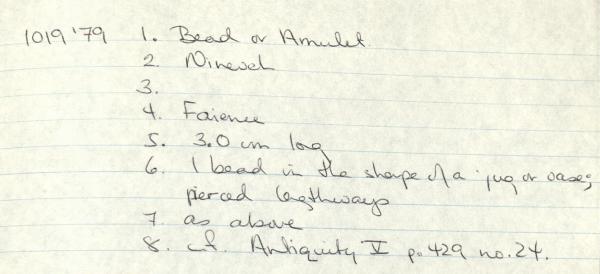 1019 '79 1. Bead or Amulet.
2. Nineveh
3.
4. Faience
5. 3.0 cm long
6. 1 bead in the shape of a jug or vase;
pierced lengthways
7. as above
8. cf. Antiquity V p. 429 no. 24.